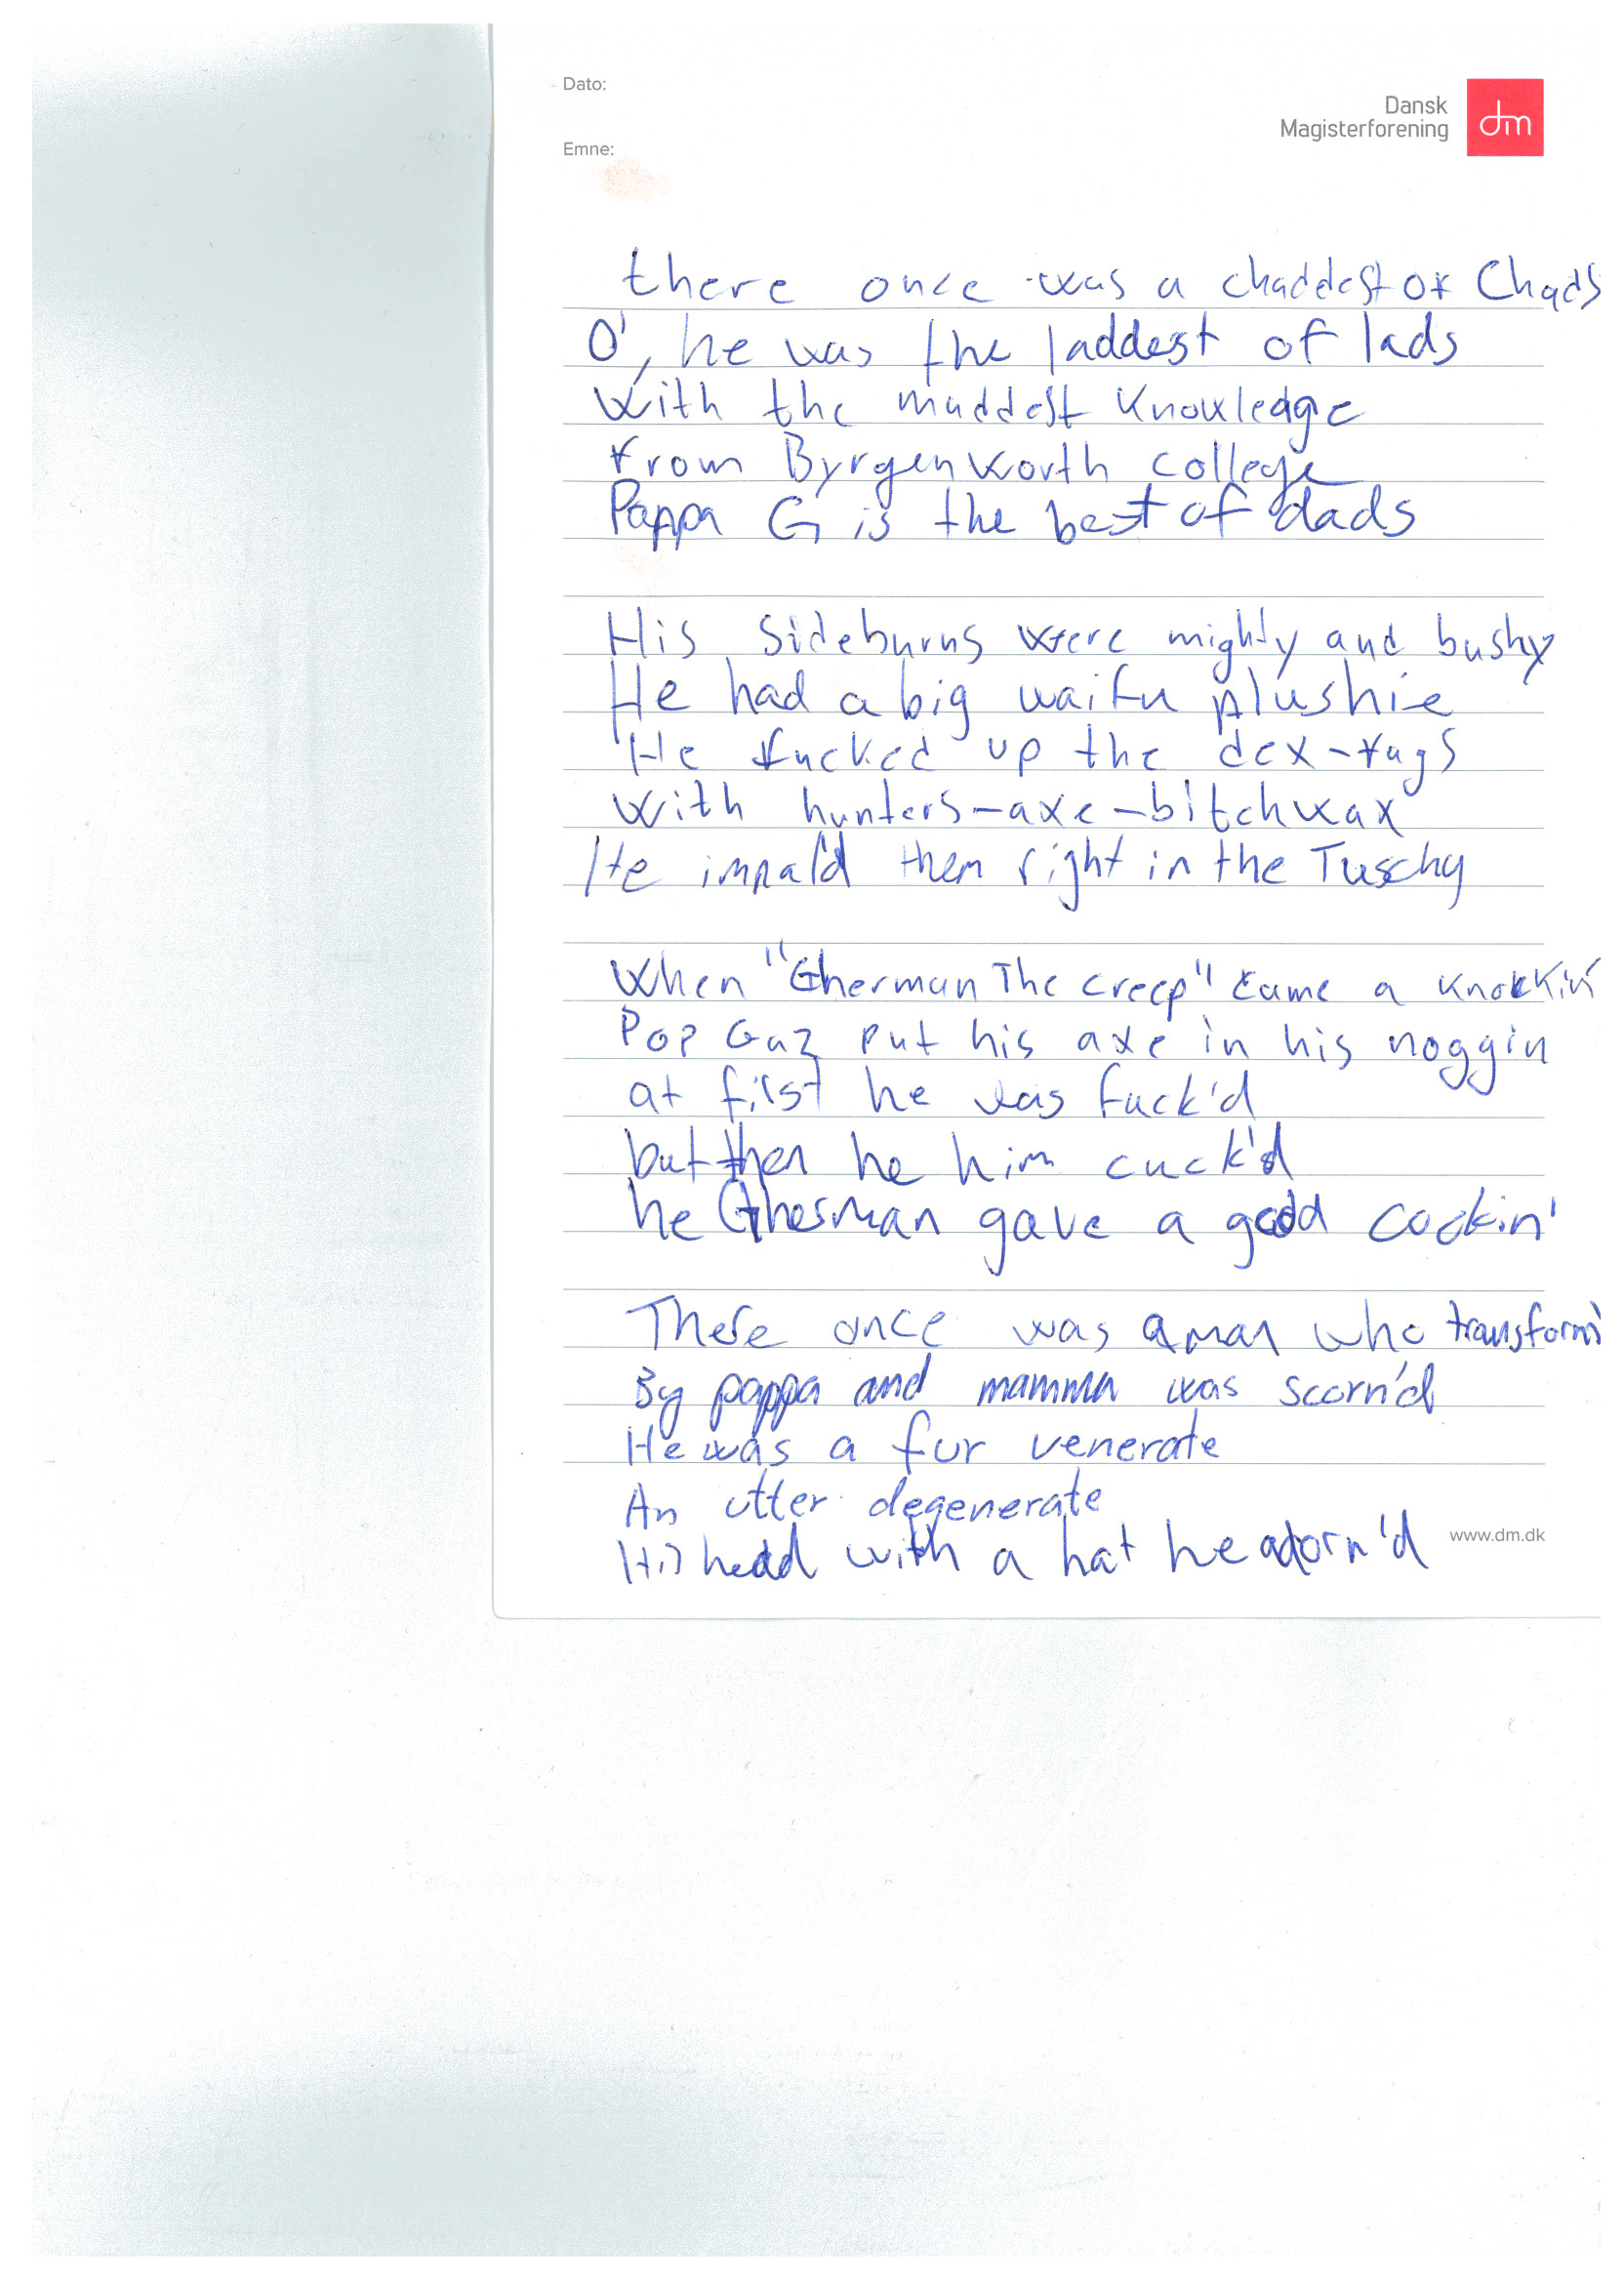 Dato:
Dansk
Magisterforening
dm
Emne:
there once was a chaddest of Chads
O', he was the laddest of lads
With the maddest Knowledge
from Byrgenworth college
Pappa G is the best of dads
His Sideburns were mighty and bushy
He had a big waifu plushie
He fucked up the dex-fags
With hunters-axe-bitchwax
He impal'd them right in the Tuschy
When "Gherman The creep" came a knockin'
Pop Gaz put his axe in his noggin
at first he was fuck'd
but then he him cuck'd
he Gherman gave a good cockin'
There once was a man who transform'
By pappa and mamma was scorn'd
He was a fur venerate
An utter degenerate
His head with a hat he adorn'd
www.dm.dk